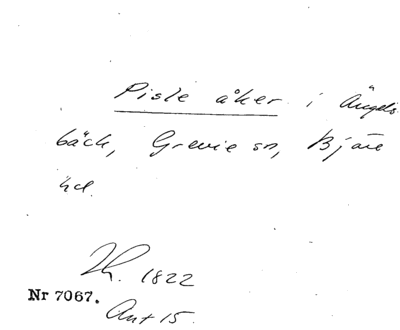 Pisle åker i Ängels
bäck, Grevie sn, Bjäre
hd.
Th. 1822
Nr 7067.
Ant 15.